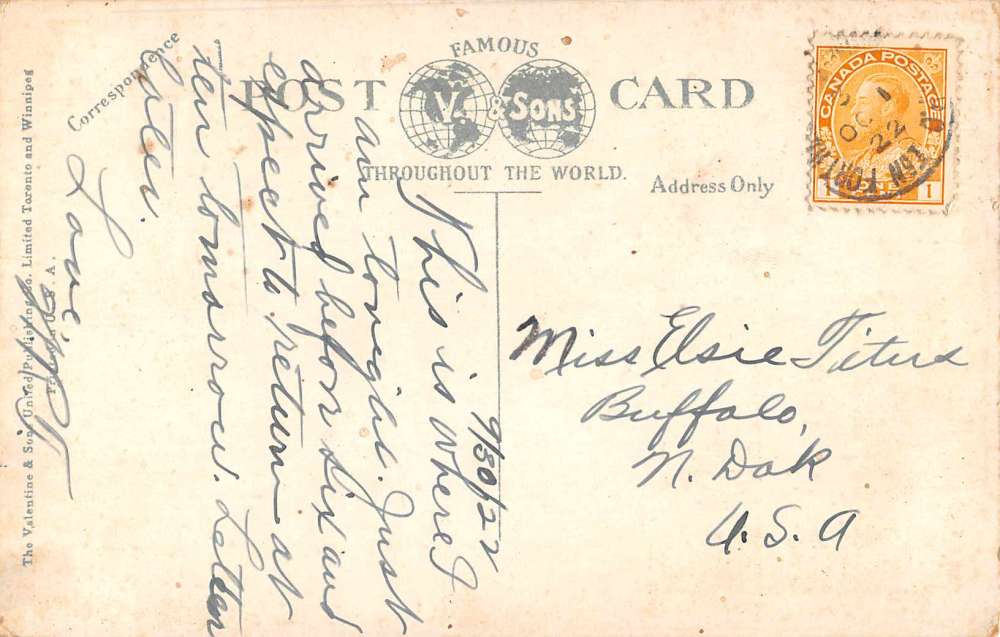 FAMOUS
POST CARD
V. & SONS
THROUGHOUT THE WORLD.
Correspondence
Address Only
CANADA POSTAGE
1 1
OC 1
22
9/30/22
This is where I
am tonight. Just
arrived before six and
expect to return at
ten tomorrow. Letter
later.
Love,
Miss Elsie Titus
Buffalo,
N. Dak
U.S.A
The Valentine & Sons United Publishing Co. Limited Toronto and Winnipeg
Printed in U. S. A.